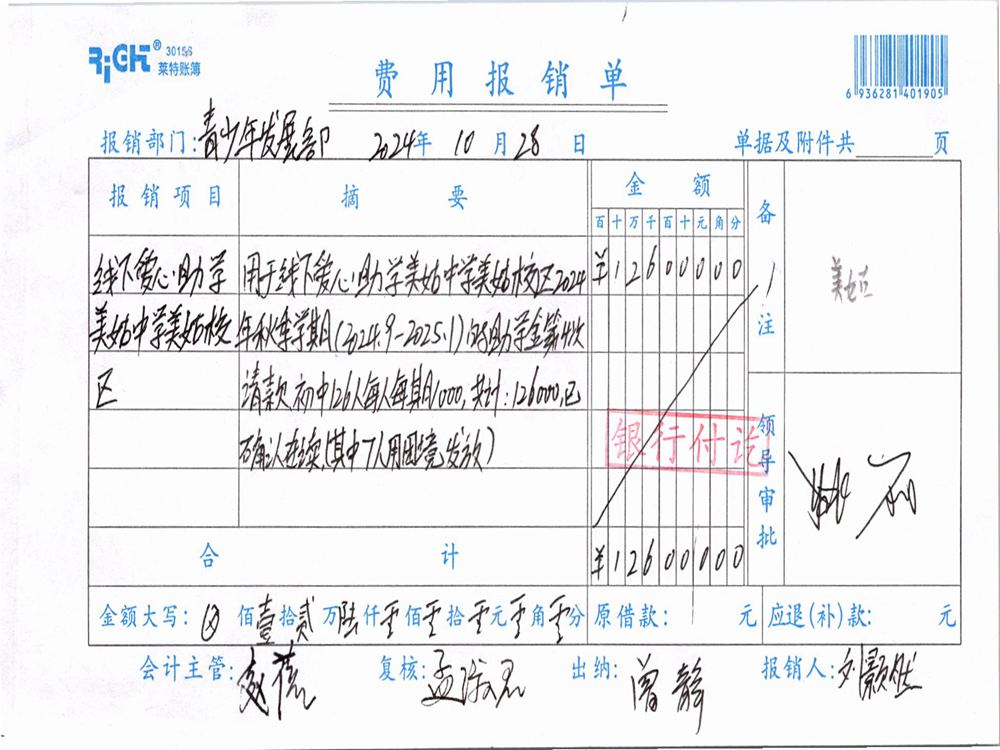 RiGHT® 30156
莱特账簿
费用报销单
6 936281 401905
报销部门:青少年发展部 2024年 10月28日 单据及附件共 页
报销项目 摘要 金额 备注
百十万千百十元角分
线下爱心助学 用于线下爱心助学美姑中学美姑校区2024 ¥12600000
美姑中学美姑校 年秋季学期(2024.9-2025.1)的助学金第4次
区 请款,初中126人每人每期1000,共计:126000,已
确认在读(其中7人用困境发放)
银行付讫
领导审批
合计 ¥12600000
金额大写: ⊗ 佰壹拾贰万陆仟零佰零拾零元零角零分 原借款: 元 应退(补)款: 元
会计主管: 复核: 出纳:曾静 报销人: